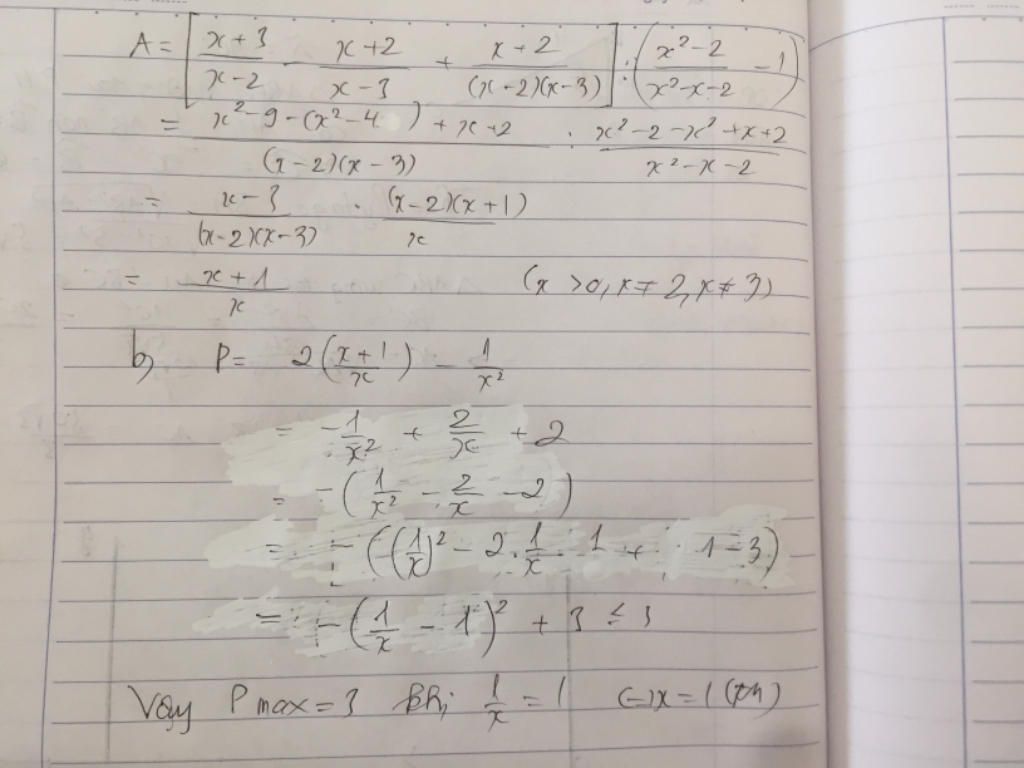 A = [ (x+3)/(x-2) - (x+2)/(x-3) + (x+2)/((x-2)(x-3)) ] : ( (x²-2)/(x²-x-2) - 1 )
= (x²-9-(x²-4)+x+2)/((x-2)(x-3)) : (x²-2-x²+x+2)/(x²-x-2)
= (x-3)/((x-2)(x-3)) . ((x-2)(x+1))/x
= (x+1)/x (x >0, x≠2, x≠3)
b, P = 2((x+1)/x) - 1/x²
= -1/x² + 2/x + 2
= -(1/x² - 2/x - 2)
= -((1/x)² - 2.1/x.1 + 1-3)
= -(1/x - 1)² + 3 ≤ 3
Vậy P max = 3 khi 1/x = 1 (=) x = 1 (tm)